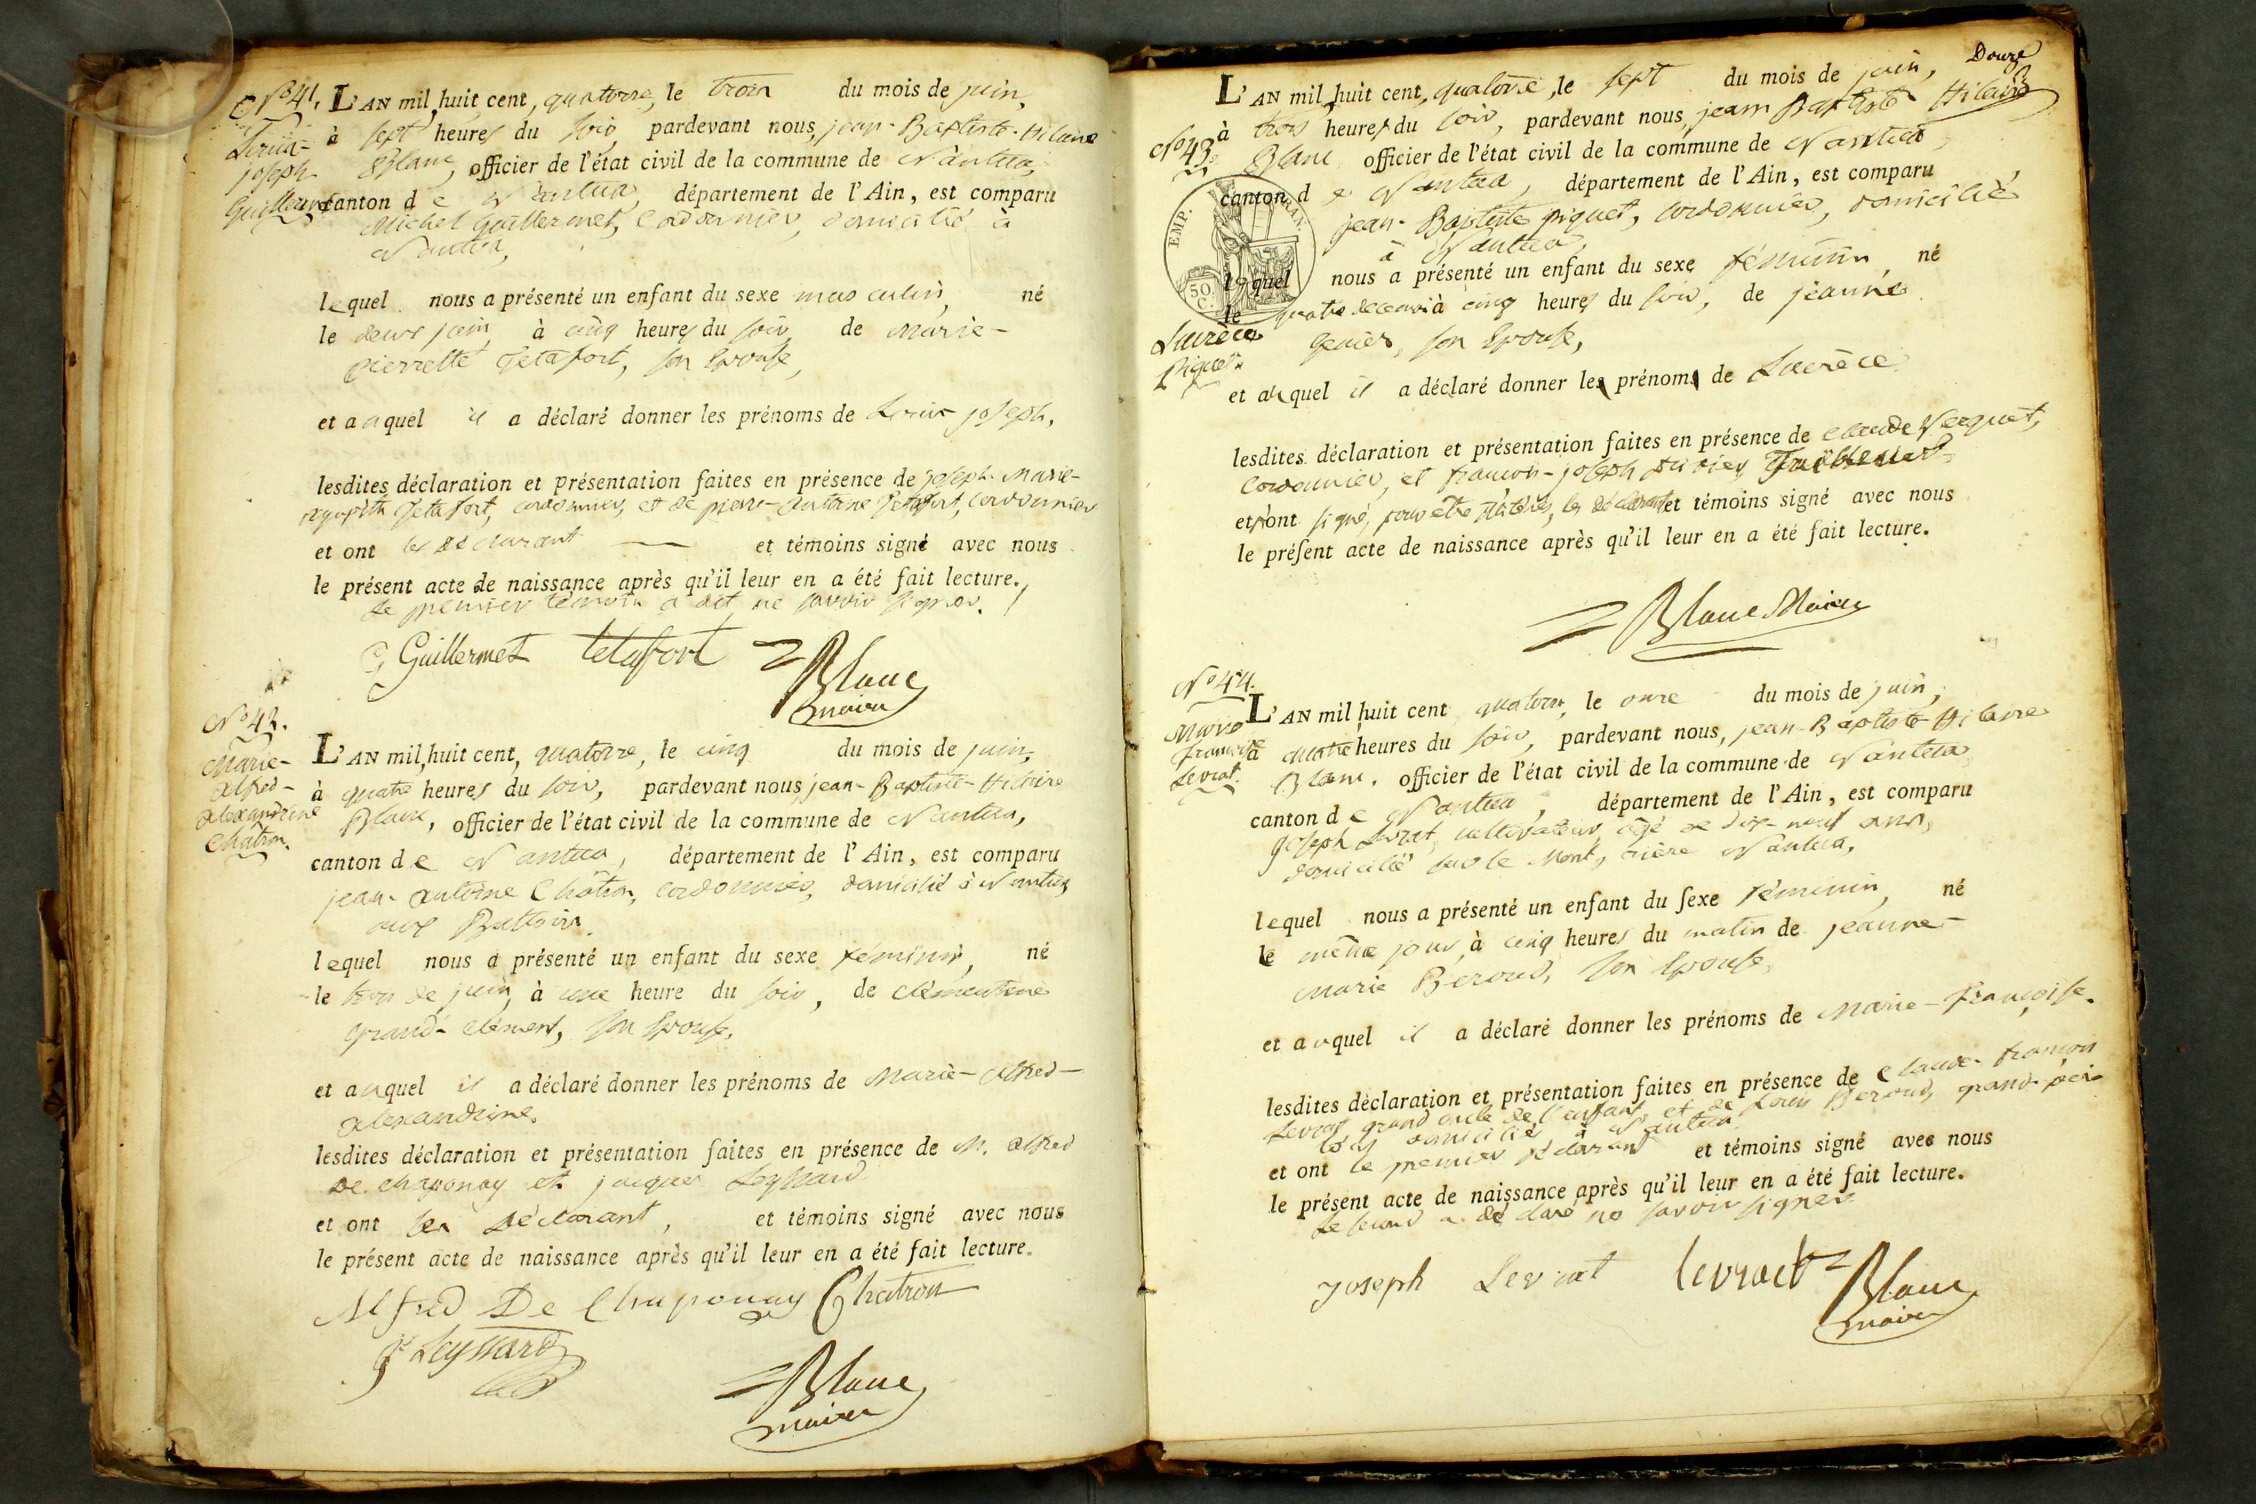 N.º 41.
Louis-
joseph
Guillermet
L'AN mil huit cent, quatorze, le trois du mois de juin,
à sept heures du soir, pardevant nous, jean-Baptiste-Hilaire
Blanc, officier de l'état civil de la commune de Nantua,
canton de Nantua, département de l'Ain, est comparu
Michel Guillermet, Cordonnier, domicilié à
Nantua,
lequel nous a présenté un enfant du sexe masculin, né
le deux juin, à cinq heures du soir, de Marie-
pierrette Tetafort, son Epouse,
et auquel il a déclaré donner les prénoms de Louis-joseph.
lesdites déclaration et présentation faites en présence de joseph-Marie-
Tetafort, cordonnier, et de pierre-Antoine Tetafort, cordonnier
et ont les déclarant et témoins signé avec nous
le présent acte de naissance après qu'il leur en a été fait lecture.
Le premier témoin a dit ne savoir signer.
Guillermet tetafort Blanc
maire
N.º 42.
Marie-
Alfred-
alexandrine
Chatron.
L'AN mil huit cent, quatorze, le cinq du mois de juin,
à quatre heures du soir, pardevant nous, jean-Baptiste-Hilaire
Blanc, officier de l'état civil de la commune de Nantua,
canton de Nantua, département de l'Ain, est comparu
jean-antoine Chatron, cordonnier, domicilié à Nantua,
aux Battoirs.
lequel nous a présenté un enfant du sexe féminin, né
le trois de juin, à une heure du soir, de clémentine
grand-clément, son Epouse,
et auquel il a déclaré donner les prénoms de Marie-Alfred-
alexandrine.
lesdites déclaration et présentation faites en présence de M. Alfred
de chaponay et jacques Leyssard
et ont les déclarant, et témoins signé avec nous
le présent acte de naissance après qu'il leur en a été fait lecture.
Alfred De Chaponay Chatron
Leyssard
Blanc
maire
Douze
L'AN mil huit cent, quatorze, le sept du mois de juin,
N.º 43.
à trois heures du soir, pardevant nous, jean Baptiste Hilaire
Blanc officier de l'état civil de la commune de Nantua,
canton de Nantua, département de l'Ain, est comparu
jean-Baptiste piquet, cordonnier, domicilié
à Nantua,
EMP. FRAN.
50
C.
lequel nous a présenté un enfant du sexe féminin, né
le quatre à cinq heures du soir, de jeanne
Lucrèce
Piquet.
son Epouse,
et auquel il a déclaré donner les prénoms de Lucrèce
lesdites déclaration et présentation faites en présence de claude
cordonnier, et françois-joseph
et n'ont signé, pour être illitérés, les déclarant et témoins signé avec nous
le présent acte de naissance après qu'il leur en a été fait lecture.
Blanc Maire
N.º 44.
Marie
françoise
Levrat.
L'AN mil huit cent quatorze, le onze du mois de juin,
à quatre heures du soir, pardevant nous, jean-Baptiste-Hilaire
Blanc, officier de l'état civil de la commune de Nantua,
canton de Nantua, département de l'Ain, est comparu
joseph Levrat, cultivateur, âgé de dix-neuf ans,
domicilié sur le Mont, rière Nantua,
lequel nous a présenté un enfant du sexe féminin, né
le même jour, à cinq heures du matin de jeanne-
Marie Beroud, son Epouse,
et auquel il a déclaré donner les prénoms de Marie-Françoise.
lesdites déclaration et présentation faites en présence de claude françois
Levrat grand oncle de l'enfant, et de Beroud, grand-père
domiciliés à Nantua
et ont le premier déclarant et témoins signé avec nous
le présent acte de naissance après qu'il leur en a été fait lecture.
Le second a déclaré ne savoir signer
Joseph Levrat levrat Blanc
maire